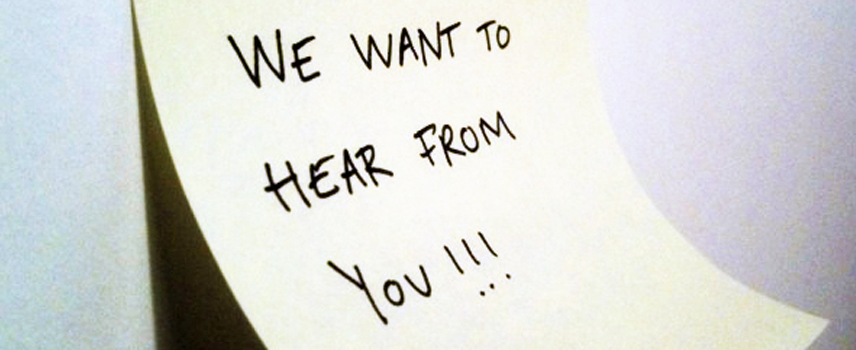 WE WANT TO
HEAR FROM
YOU !!!